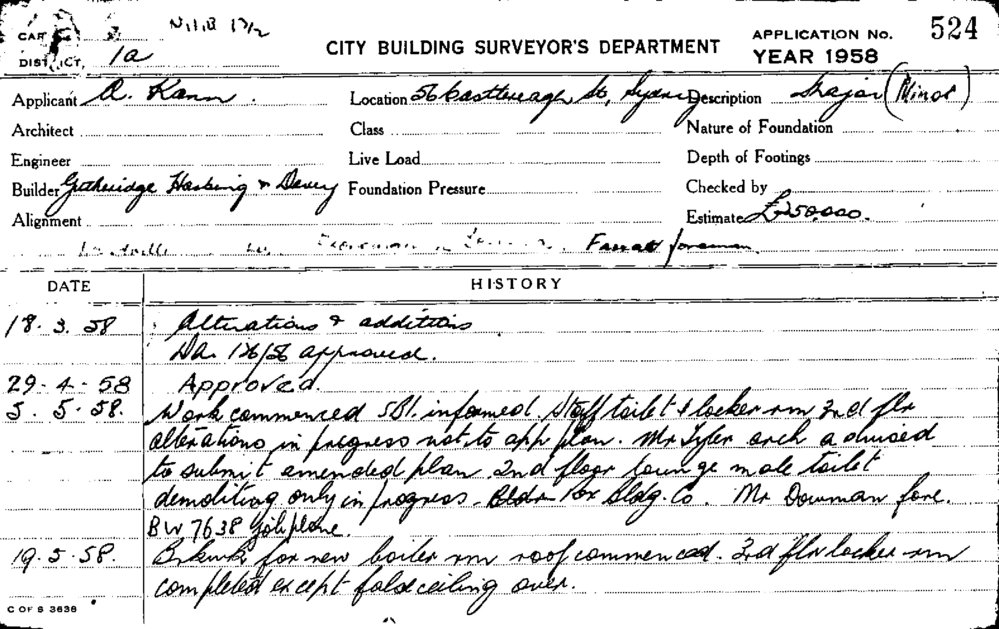 CARD
524
DISTRICT, 1a
CITY BUILDING SURVEYOR'S DEPARTMENT
APPLICATION No.
YEAR 1958
Applicant A. Kann. Location 56 Castlereagh St, Sydney Description Major (Minor)
Architect Class Nature of Foundation
Engineer Live Load Depth of Footings
Builder Gutheridge Haskins & Davey Foundation Pressure Checked by
Alignment Estimate £250,000.
foreman
DATE HISTORY
18.3.58 Alterations & additions
Da. 136/56 approved.
29-4-58 Approved.
5.5.58. Work commenced SBI. informed Staff toilet & locker rm 3rd flr
alterations in progress not to app plan. Mr Tyler arch advised
to submit amended plan. 2nd floor lounge male toilet
demoliting only in progress. Bldr Bldg. Co. Mr Dowman fore.
BW 7638 Job phone.
19.5.58. Brkwk for new boiler rm roof commenced. 3rd flr locker rm
completed except false ceiling over.
C OF S 3636